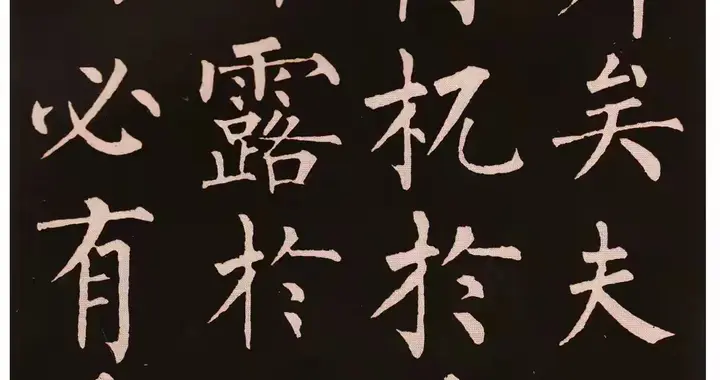 矣夫
杌於
露於
必有